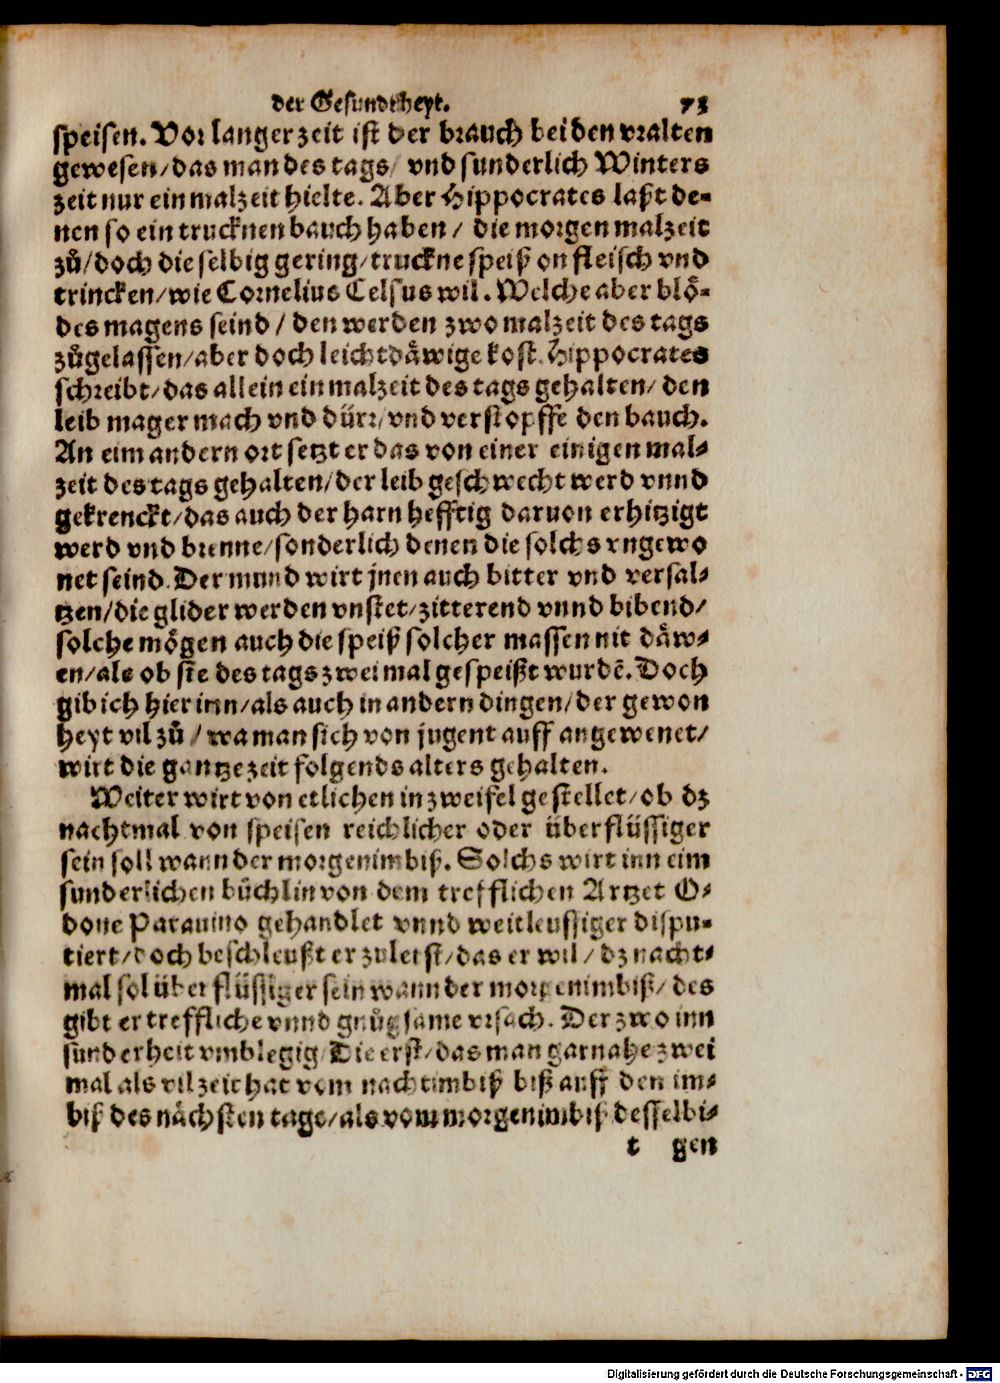 der Gesundtheyt. 73
speisen. Vor langer zeit ist der brauch bei den vralten
gewesen/das man des tags/ vnd sunderlich Winters
zeit nur ein malzeit hielte. Aber Hippocrates laßt de-
nen so ein trucknen bauch haben / die morgen malzeit
zů/doch die selbig gering/truckne speiß on fleisch vnd
trincken/wie Cornelius Celsus wil. Welche aber blö-
des magens seind / den werden zwo malzeit des tags
zůgelassen/aber doch leichtdäwige kost. Hippocrates
schreibt/das allein ein malzeit des tags gehalten/ den
leib mager mach vnd dürr/vnd verstopffe den bauch.
An eim andern ort setzt er das von einer einigen mal-
zeit des tags gehalten/der leib geschwecht werd vnnd
gekrenckt/das auch der harn hefftig daruon erhitzigt
werd vnd brenne/sonderlich denen die solchs vngewo
net seind. Der mund wirt jnen auch bitter vnd versal-
tzen/die glider werden vnstet/zitterend vnnd bibend/
solche mögen auch die speiß solcher massen nit däw-
en/als ob sie des tags zwei mal gespeißt wurdē. Doch
gib ich hier inn/als auch in andern dingen/der gewon
heyt vil zů / wa man sich von jugent auff angewenet/
wirt die gantze zeit folgends alters gehalten.
Weiter wirt von etlichen in zweifel gestellet/ob dz
nachtmal von speisen reichlicher oder überflüssiger
sein soll wann der morgenimbiß. Solchs wirt inn eim
sunderlichen büchlin von dem trefflichen Artzet O-
done Parauino gehandlet vnnd weitleuffiger dispu-
tiert/doch beschleußt er zuletst/das er wil / dz nacht-
mal sol überflüssiger sein wann der morgenimbiß/ des
gibt er treffliche vnnd gnůgsame vrsach. Der zwo inn
sunderheit vmblegig/ Die erst/das man gar nahe zwei
mal als vil zeit hat vom nachtimbiß biß auff den im-
biß des nächsten tags/als vom morgenimbiß desselbi-
t gen
Digitalisierung gefördert durch die Deutsche Forschungsgemeinschaft - DFG